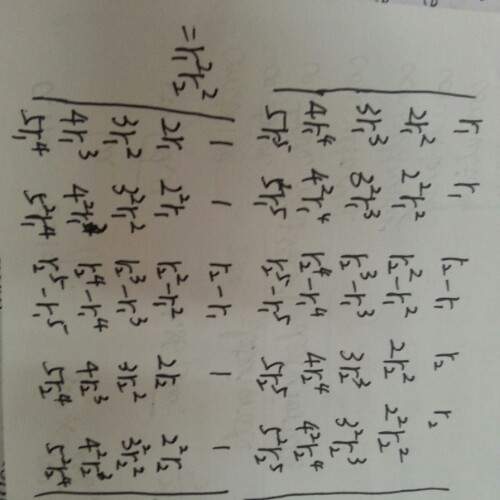 r₁ r₁ r₂-r₁ r₂ r₂
2r₁² 2²r₁² r₂²-r₁² 2r₂² 2²r₂²
3r₁³ 3²r₁³ r₂³-r₁³ 3r₂³ 3²r₂³
4r₁⁴ 4²r₁⁴ r₂⁴-r₁⁴ 4r₂⁴ 4²r₂⁴
5r₁⁵ 5²r₁⁵ r₂⁵-r₁⁵ 5r₂⁵ 5²r₂⁵
1 1 r₂-r₁ 1 1
2r₁ 2²r₁ r₂²-r₁² 2r₂ 2²r₂
=r₁²r₂² 3r₁² 3²r₁² r₂³-r₁³ 3r₂² 3²r₂²
4r₁³ 4²r₁³ r₂⁴-r₁⁴ 4r₂³ 4²r₂³
5r₁⁴ 5²r₁⁴ r₂⁵-r₁⁵ 5r₂⁴ 5²r₂⁴